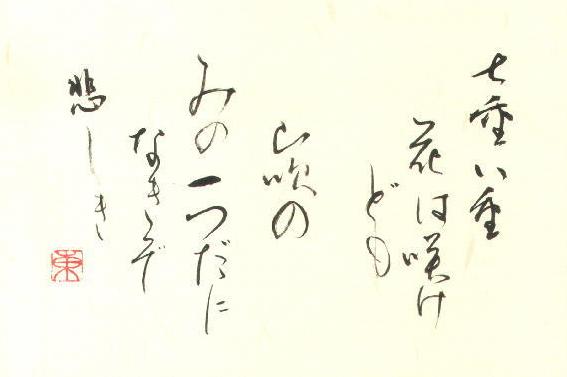 七重八重
花は咲け
ども
山吹の
みの一つだに
なきぞ
悲しき
東